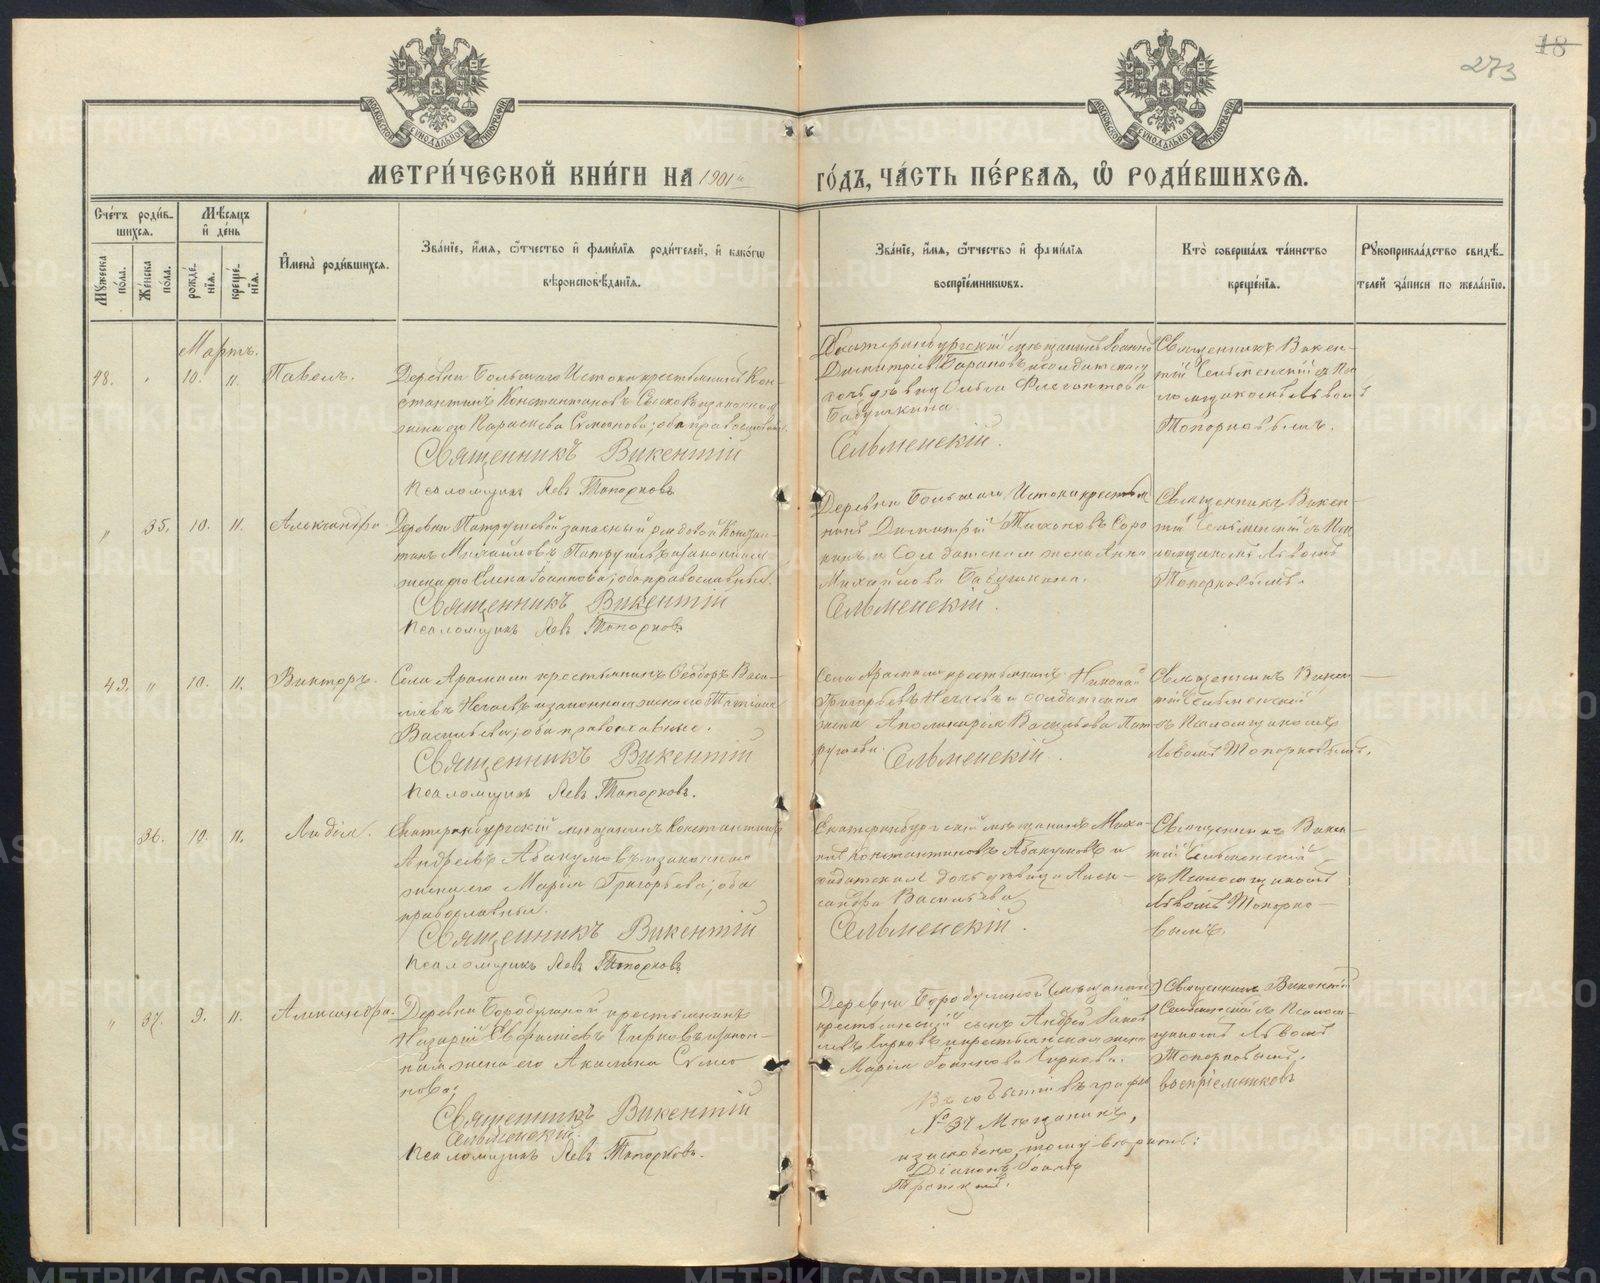 18
273
МОСКОВСКОЙ СѴНОДАЛЬНОЙ ТИПОГРАФІИ
МОСКОВСКОЙ СѴНОДАЛЬНОЙ ТИПОГРАФІИ
МЕТРИ́ЧЕСКОЙ КНИ́ГИ НА 1901й ГО́ДЪ, ЧА́СТЬ ПЕ́РВАЯ, Ѡ҆ РОДИ́ВШИХСЯ.
Сче́тъ роди́в-
шихся.
Мѣ́сяцъ
и҆ де́нь
Мꙋ́жеска по́ла.
Же́нска по́ла.
рожде́-
нїя.
креще́-
нїя.
И҆мена̀ роди́вшихся.
Зва́нїе, и҆́мя, ѻ҆́тчество и҆ фами́лїя роди́телей, и҆ како́гѡ
вѣроисповѣ́данїя.
Зва́нїе, и҆́мя, ѻ҆́тчество и҆ фами́лїя
воспрїе́мникѡвъ.
Кто̀ соверша́лъ та́инство
креще́нїя.
Рꙋкоприкла́дство свидѣ́-
телей за́писи по жела́нїю.
Мартъ.
48. " 10. 11. Павелъ.
Деревни Большаго Истока крестьянинъ Кон-
стантинъ Константиновъ и законная
жена его Параскева Симонова; оба православные.
Священникъ Викентій
Псаломщикъ Левъ Топорковъ
Екатеринбургскій мѣщанинъ Іоаннъ
Димитріевъ Барановъ и солдатская
дочь дѣвица Ольга Флегонтова
Бабушкина.
Сельменскій.
Священникъ Викен-
тій Сельменскій съ Пса-
ломщикомъ Львомъ
Топорковымъ.
" 35. 10. 11. Александра
Деревни Патрушевой запасный рядовой Констан-
тинъ Михайловъ Патрушевъ и законная
жена его Елена Іоаннова; оба православные.
Священникъ Викентій
Псаломщикъ Левъ Топорковъ
Деревни Большаго Истока крестья-
нинъ Димитрій Тихоновъ Соро-
кинъ и Солдатская жена Анна
Михайлова Бабушкина.
Сельменскій.
Священникъ Викен-
тій Сельменскій съ Пса-
ломщикомъ Львомъ
Топорковымъ.
49. " 10. 11. Викторъ.
Села Арамили крестьянинъ Ѳеодоръ Васи-
льевъ Нечаевъ и законная жена его Татіана
Васильева; оба православные.
Священникъ Викентій
Псаломщикъ Левъ Топорковъ.
Села Арамили крестьянинъ Николай
Григорьевъ Нечаевъ и солдатская
жена Аполинарія Васильева Пат-
рушева.
Сельменскій.
Священникъ Викен-
тій Сельменскій
съ Псаломщикомъ
Львомъ Топорковымъ.
36. 10. 11. Лидія.
Екатеринбургскій мѣщанинъ Константинъ
Андреевъ Абакумовъ и законная
жена его Марія Григорьева; оба
православные.
Священникъ Викентій
Псаломщикъ Левъ Топорковъ
Екатеринбургскій мѣщанинъ Миха-
илъ Константиновъ Абакумовъ и
солдатская дочь дѣвица Алек-
сандра Васильева
Сельменскій.
Священникъ Викен-
тій Сельменскій
съ Псаломщикомъ
Львомъ Топорко-
вымъ.
" 37. 9. 11. Александра.
Деревни Бородулиной крестьянинъ
Назарій Чирковъ и закон-
ная жена его Акилина Симо-
нова;
Священникъ Викентій
Сельменскій.
Псаломщикъ Левъ Топорковъ.
Деревни Бородулиной
крестьянскій сынъ Андрей
Чирковъ и крестьянская жена
Марія Іоаннова Чиркова.
Въ событіи въ графѣ воспріемниковъ
№ 37 Мѣщанинъ,
Діаконъ Іоаннъ
Троицкій.
Священникъ Викентій
Сельменскій съ Псалом-
щикомъ Львомъ
Топорковымъ.